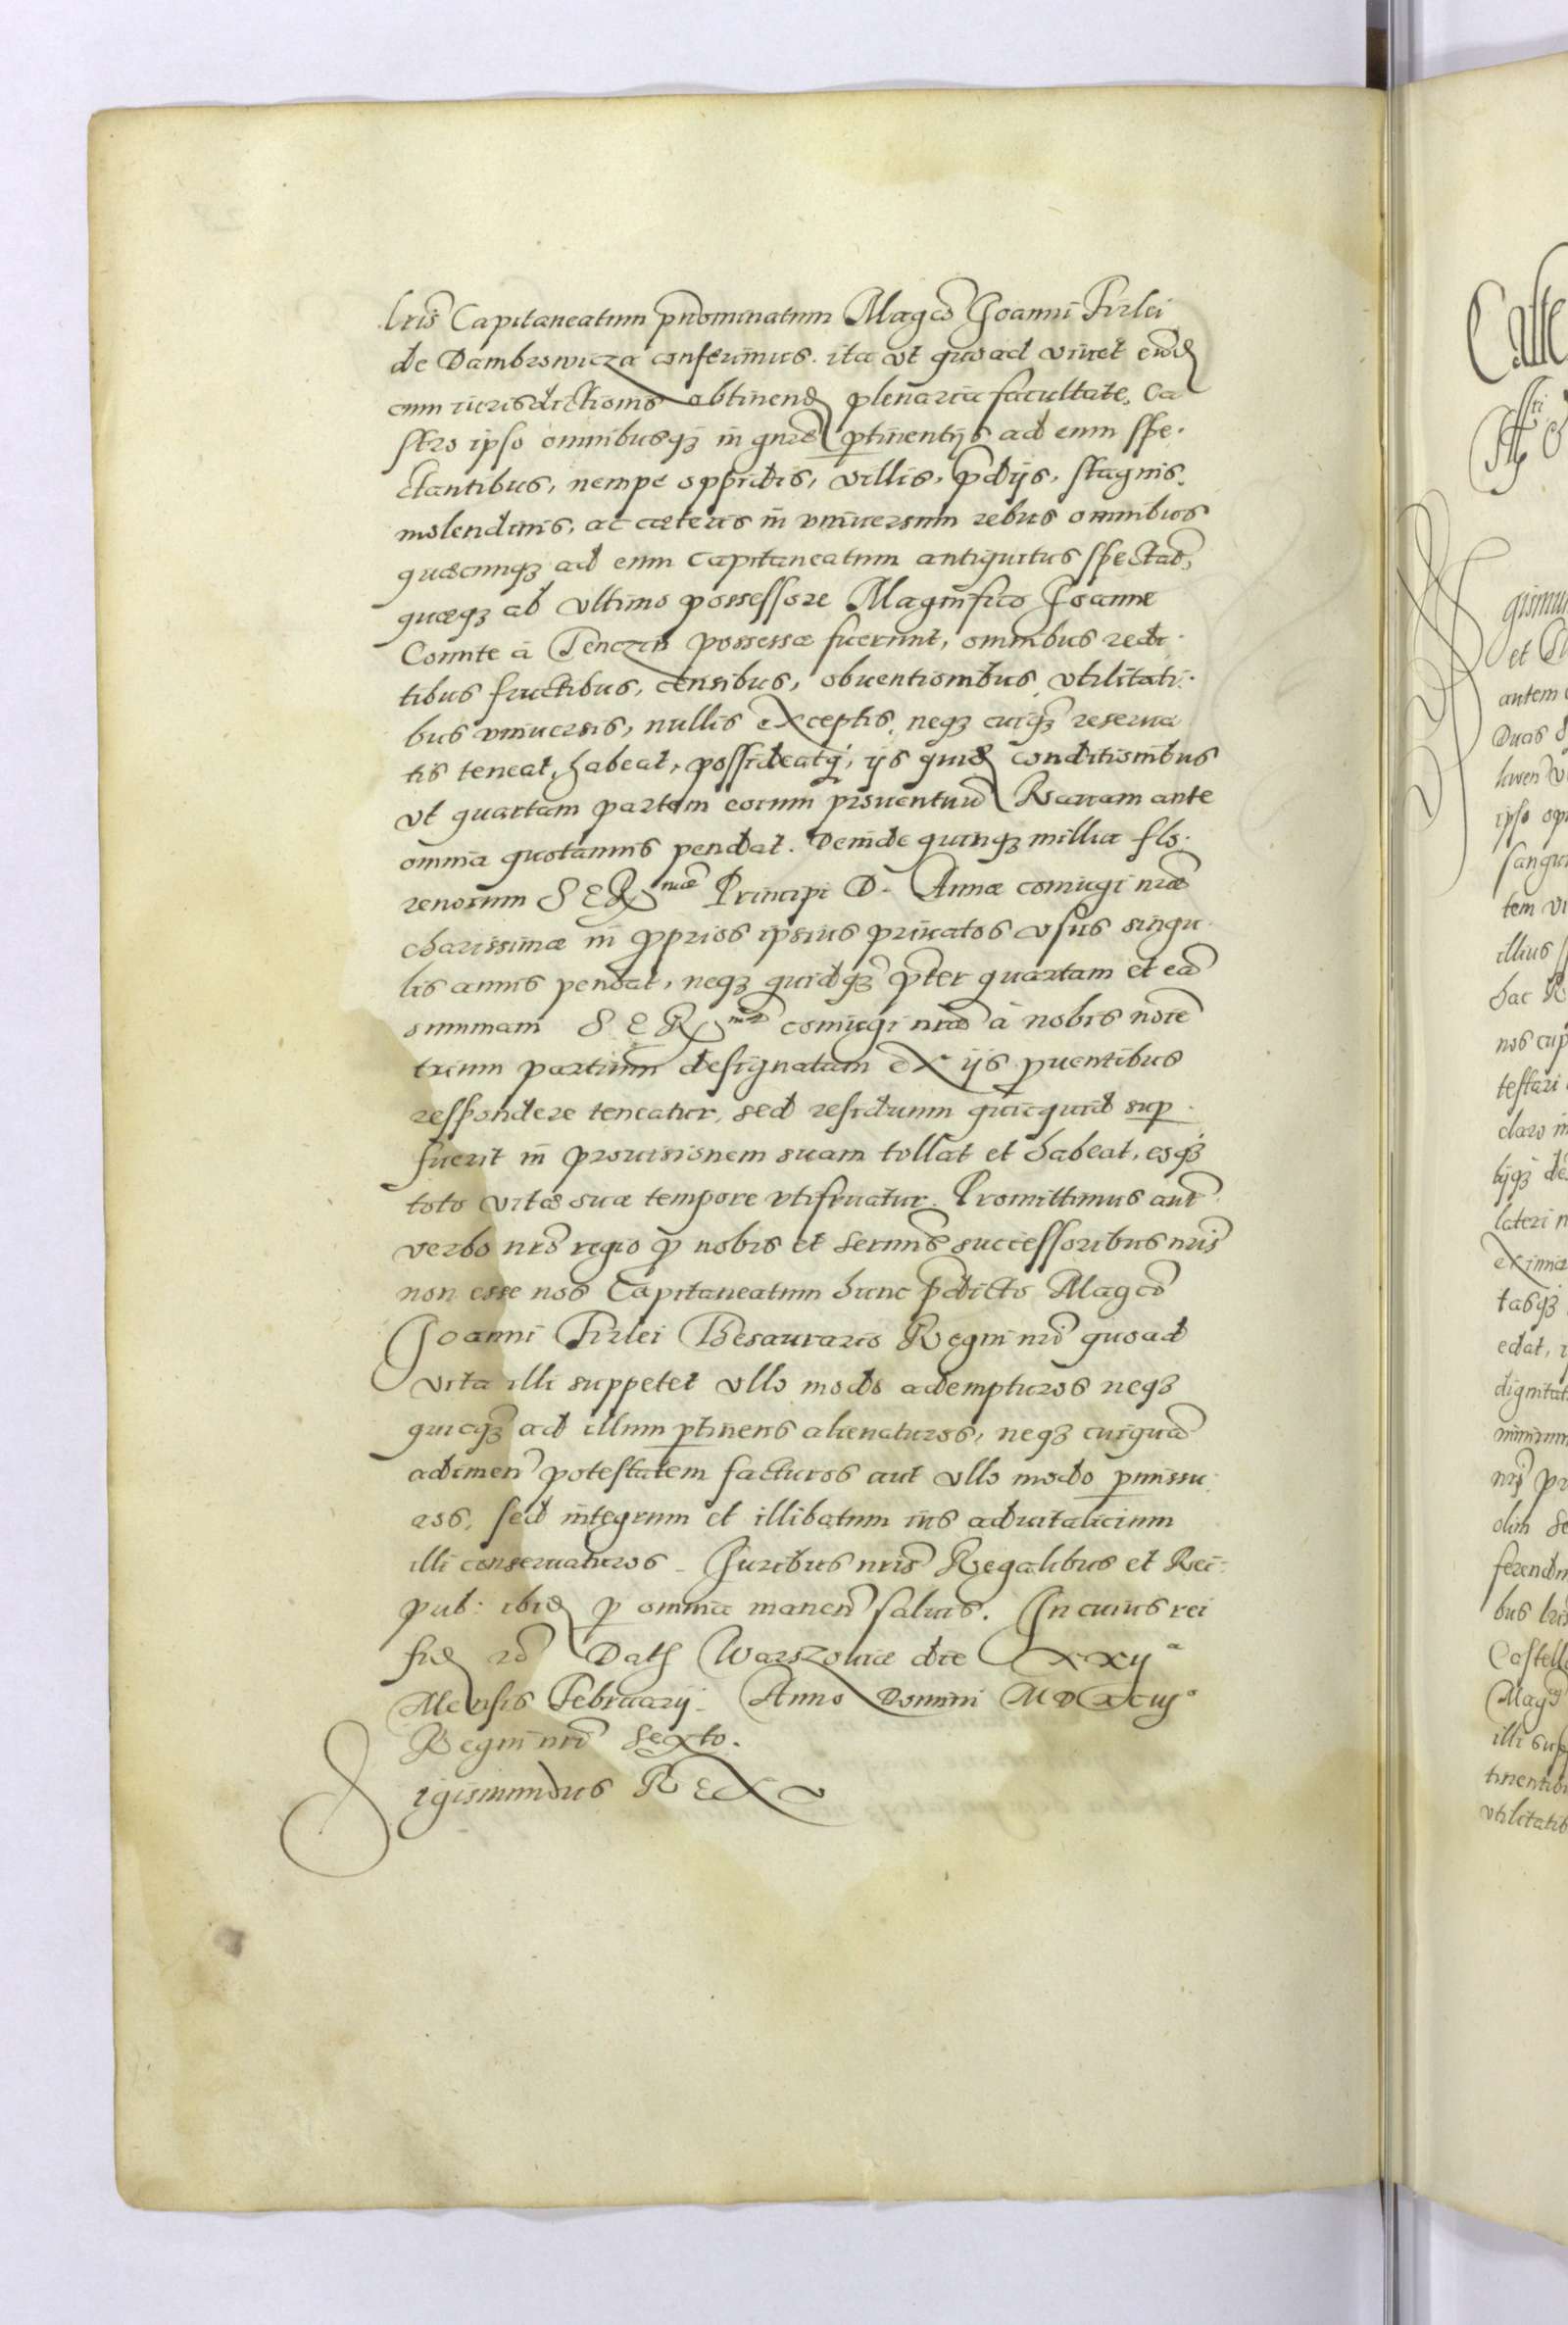 lris Capitaneatum pnominatum Magco Joanni Firlei
de Dambrowicza conferimus. ita vt quoad viuet eund
cum iurisdictionis obtinend plenaria facultate, Ca
stro ipso omnibusq in gnre ptinentijs ad eum spe.
ctantibus, nempe oppidis, villis, pdijs, stagnis,
molendinis, ac cæteris in vniuersum rebus omnibus
quæcunq ad eum Capitaneatum antiquitus spectab,
quæq ab vltimo possessore Magnifico Joanne
Comite à Tenczin possessæ fuerunt, omnibus redi.
tibus fructibus, censibus, obuentionibus vtilitati.
bus vniuersis, nullis exceptis, neq cuiq reserua
tis teneat, habeat, possideatq, ijs quid conditionibus
vt quartam partem eorum prouentuu Rauam ante
omnia quotannis pendat. Deinde quinq millia flo.
renorum SER mæ Principi D. Annæ coniugi nræ
charissimæ in pprios ipsius priuatos vsus singu.
lis annis pendat, neq quidq pter quartam et ea
summam SER mæ coniugi nræ à nobis noie
trium partium designatam ex ijs puentibus
respondere teneatur, sed residuum quicquid sup.
fuerit in prouisionem suam tollat et habeat, eoq
toto vitæ suæ tempore vtifruatur. Promittimus aut
verbo nro regio p nobis et sernis successoribus nris
non esse nos Capitaneatum hunc pdicto Magco
Joanni Firlei Thesaurario Regni nri quoad
vita illi suppetet vllo modo adempturos neq
quicq ad illum ptinens alienaturos, neq cuiqua
adimen potestatem facturos aut vllo modo pmissu
ros, sed integrum et illibatum ius aduitalicium
illi conseruaturos. Juribus nris Regalibus et Rei:
pub: ibid p omnia manen saluis. In cuius rei
fid Dat Warszouiæ die XXij a
Mensis Februarij. Anno Domini MDXCiij o
Regni nri Sexto.
Sigismundus REX
Caste
gismu
antem
Duas
ipso opp
sangui
tem vi
illius
hac R
nos cup
testari
claro in
lateri n
eximia
tasq
edat,
dignitat
nris pr
olim
ferendu
bus lris
Castell
Mag
illi sup
tinentib
vtilitatib